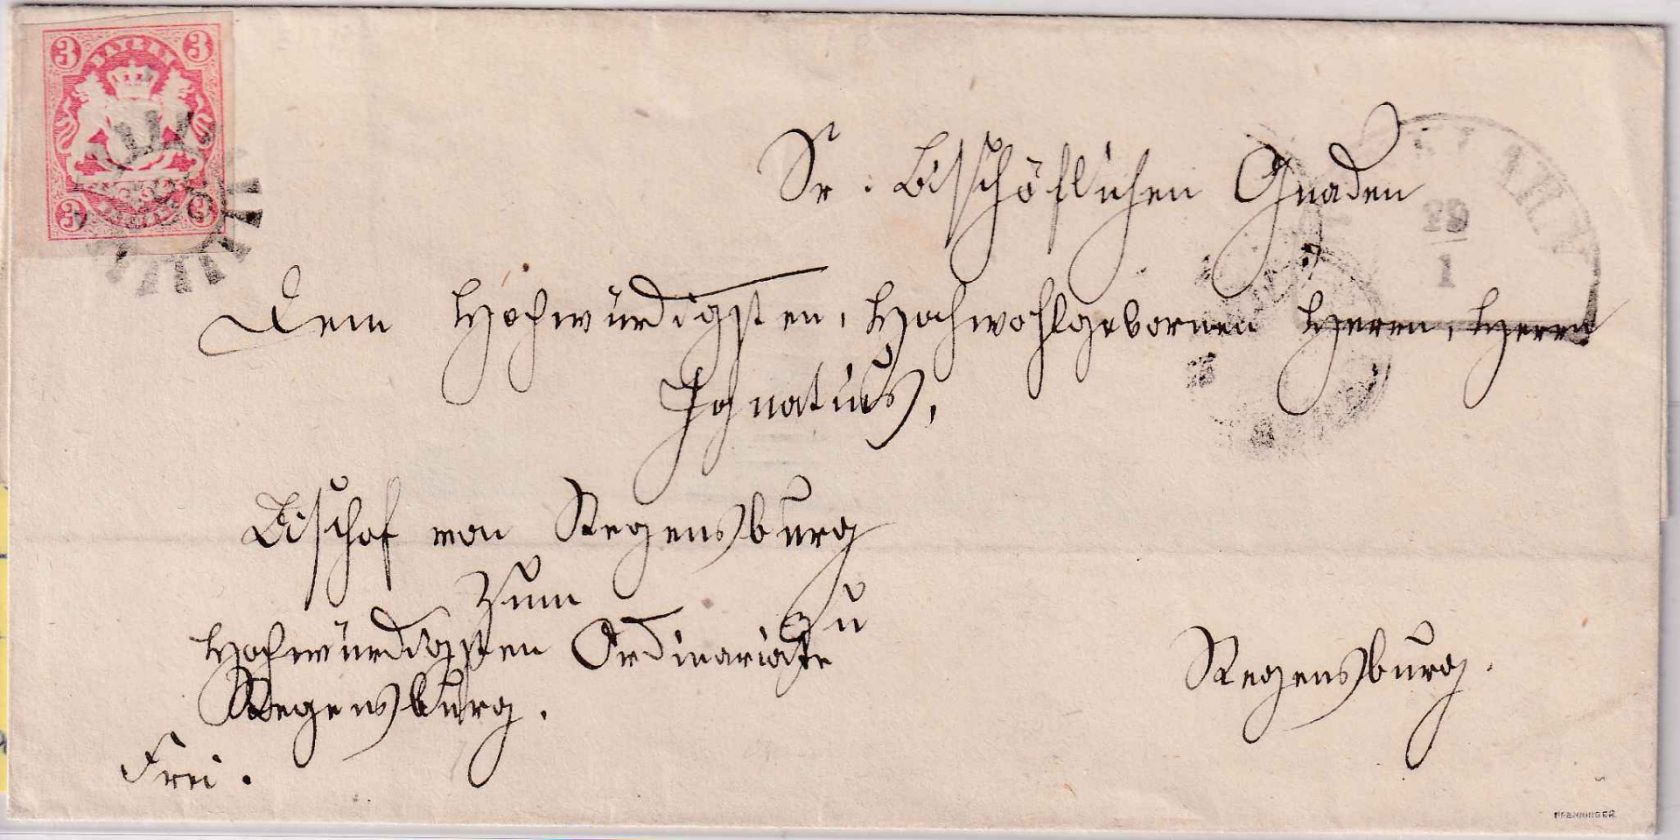 3 BAYERN 3
3 3
Sr. Bischöflichen Gnaden
29
1
Dem Hochwürdigsten, Hochwohlgebornen Herrn, Herrn
Ignatius,
Bischof von Regensburg
zum
zu
Hochwürdigsten Ordinariate
Regensburg.
Regensburg.
Frei.
PFENNINGER